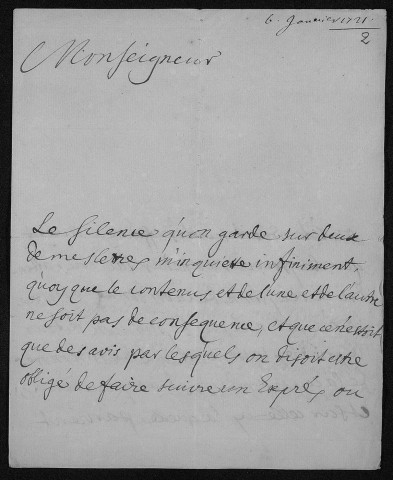 6. Janvier 1721.
2
Monseigneur
Le silence qu'on garde sur deux
de mes lettres m'inquiete infiniment,
quoy que le contenus et de l'une et de l'autre
ne soit pas de consequence, et que ce n'estoit
que des avis par lesquels on disoit estre
obligé de faire suivre un Exprés ou